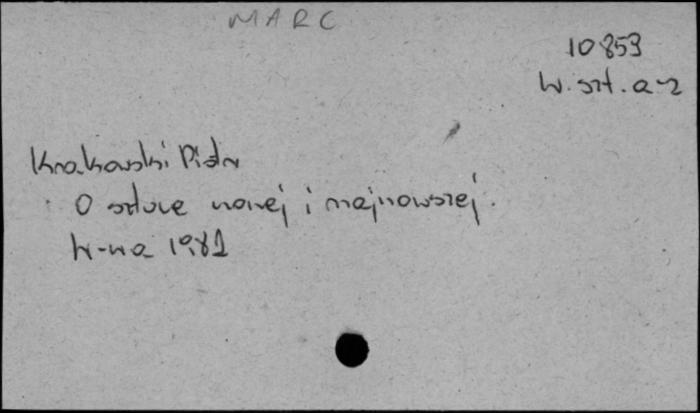 MARC
10853
W. szt. a-z
Krakowski Piotr
O sztuce nowej i najnowszej.
W-wa 1981